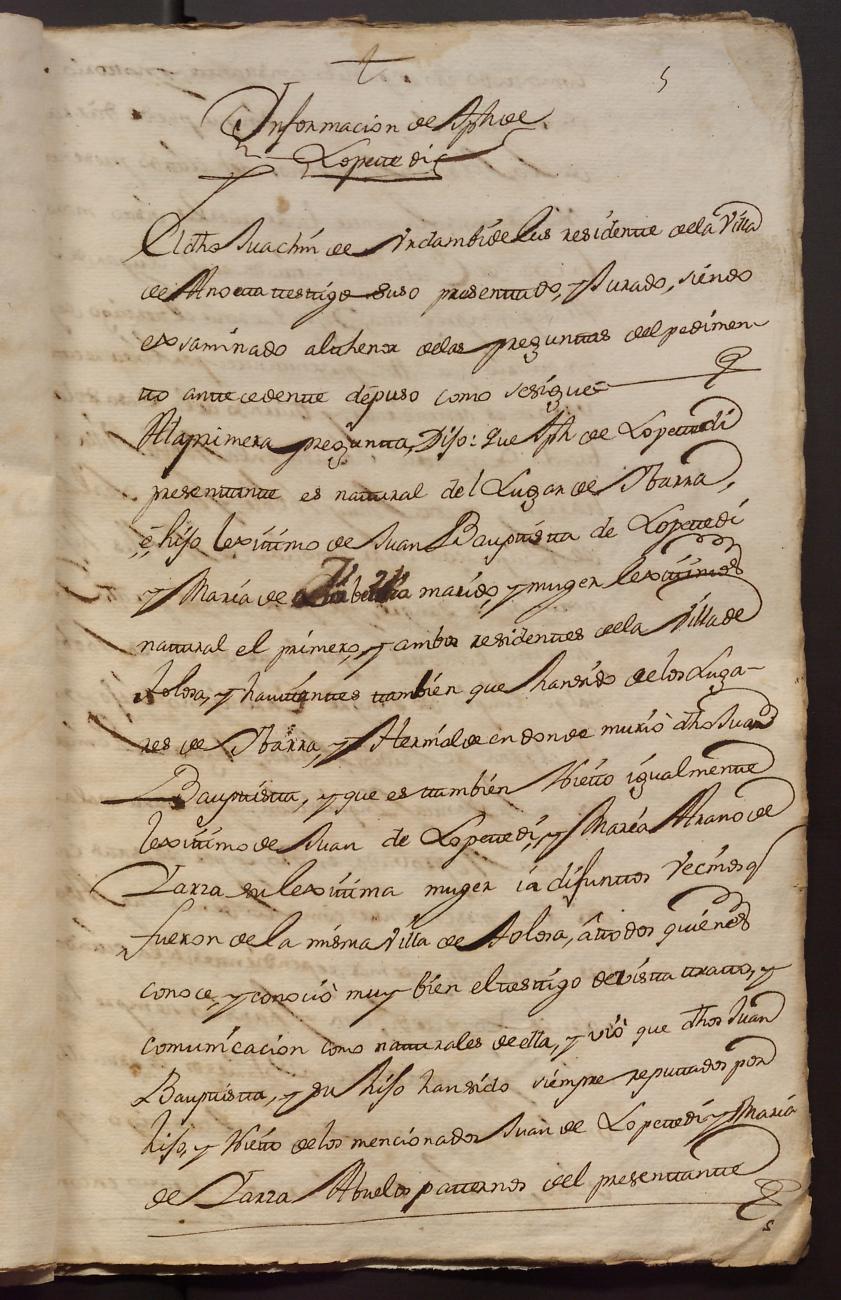 5
Informacion de Jph de
Lopetedi
El dho Juachin de Urdambidelus residente de la Villa
de Anoeta testigo suso presentado, y Jurado, siendo
exsaminado althenor delas preguntas del pedimen-
to antecedente depuso como sesigue
Ala primera pregunta, Dijo: Que Jph de Lopetedi
presentante es natural del Lugar de Ybarra,
é hijo lexitimo de Juan Bauptista de Lopetedi
y María de marido, y muger lexitimos
natural el primero, y ambos residentes dela Villa de
tolosa, y havitantes tambien que han sido de los Luga-
res de Ybarra, y Hernialde en donde murió dho Juan
Bauptista, y que es tambien Nieto igualmente
lexitimo de Juan de Lopetedi, y María Arano de
Yarza su lexitima muger ia difuntos Vecinos q
fueron de la misma Villa de tolosa, á todos quienes
conoce, y conoció muy bien el testigo de vista trato, y
comunicacion como naturales de ella, y vió que dhos Juan
Bauptista, y su hijo han sido siempre reputados por
hijo, y Nieto de los mencionados Juan de Lopetedi y María
de Yarza Abuelos paternos del presentante